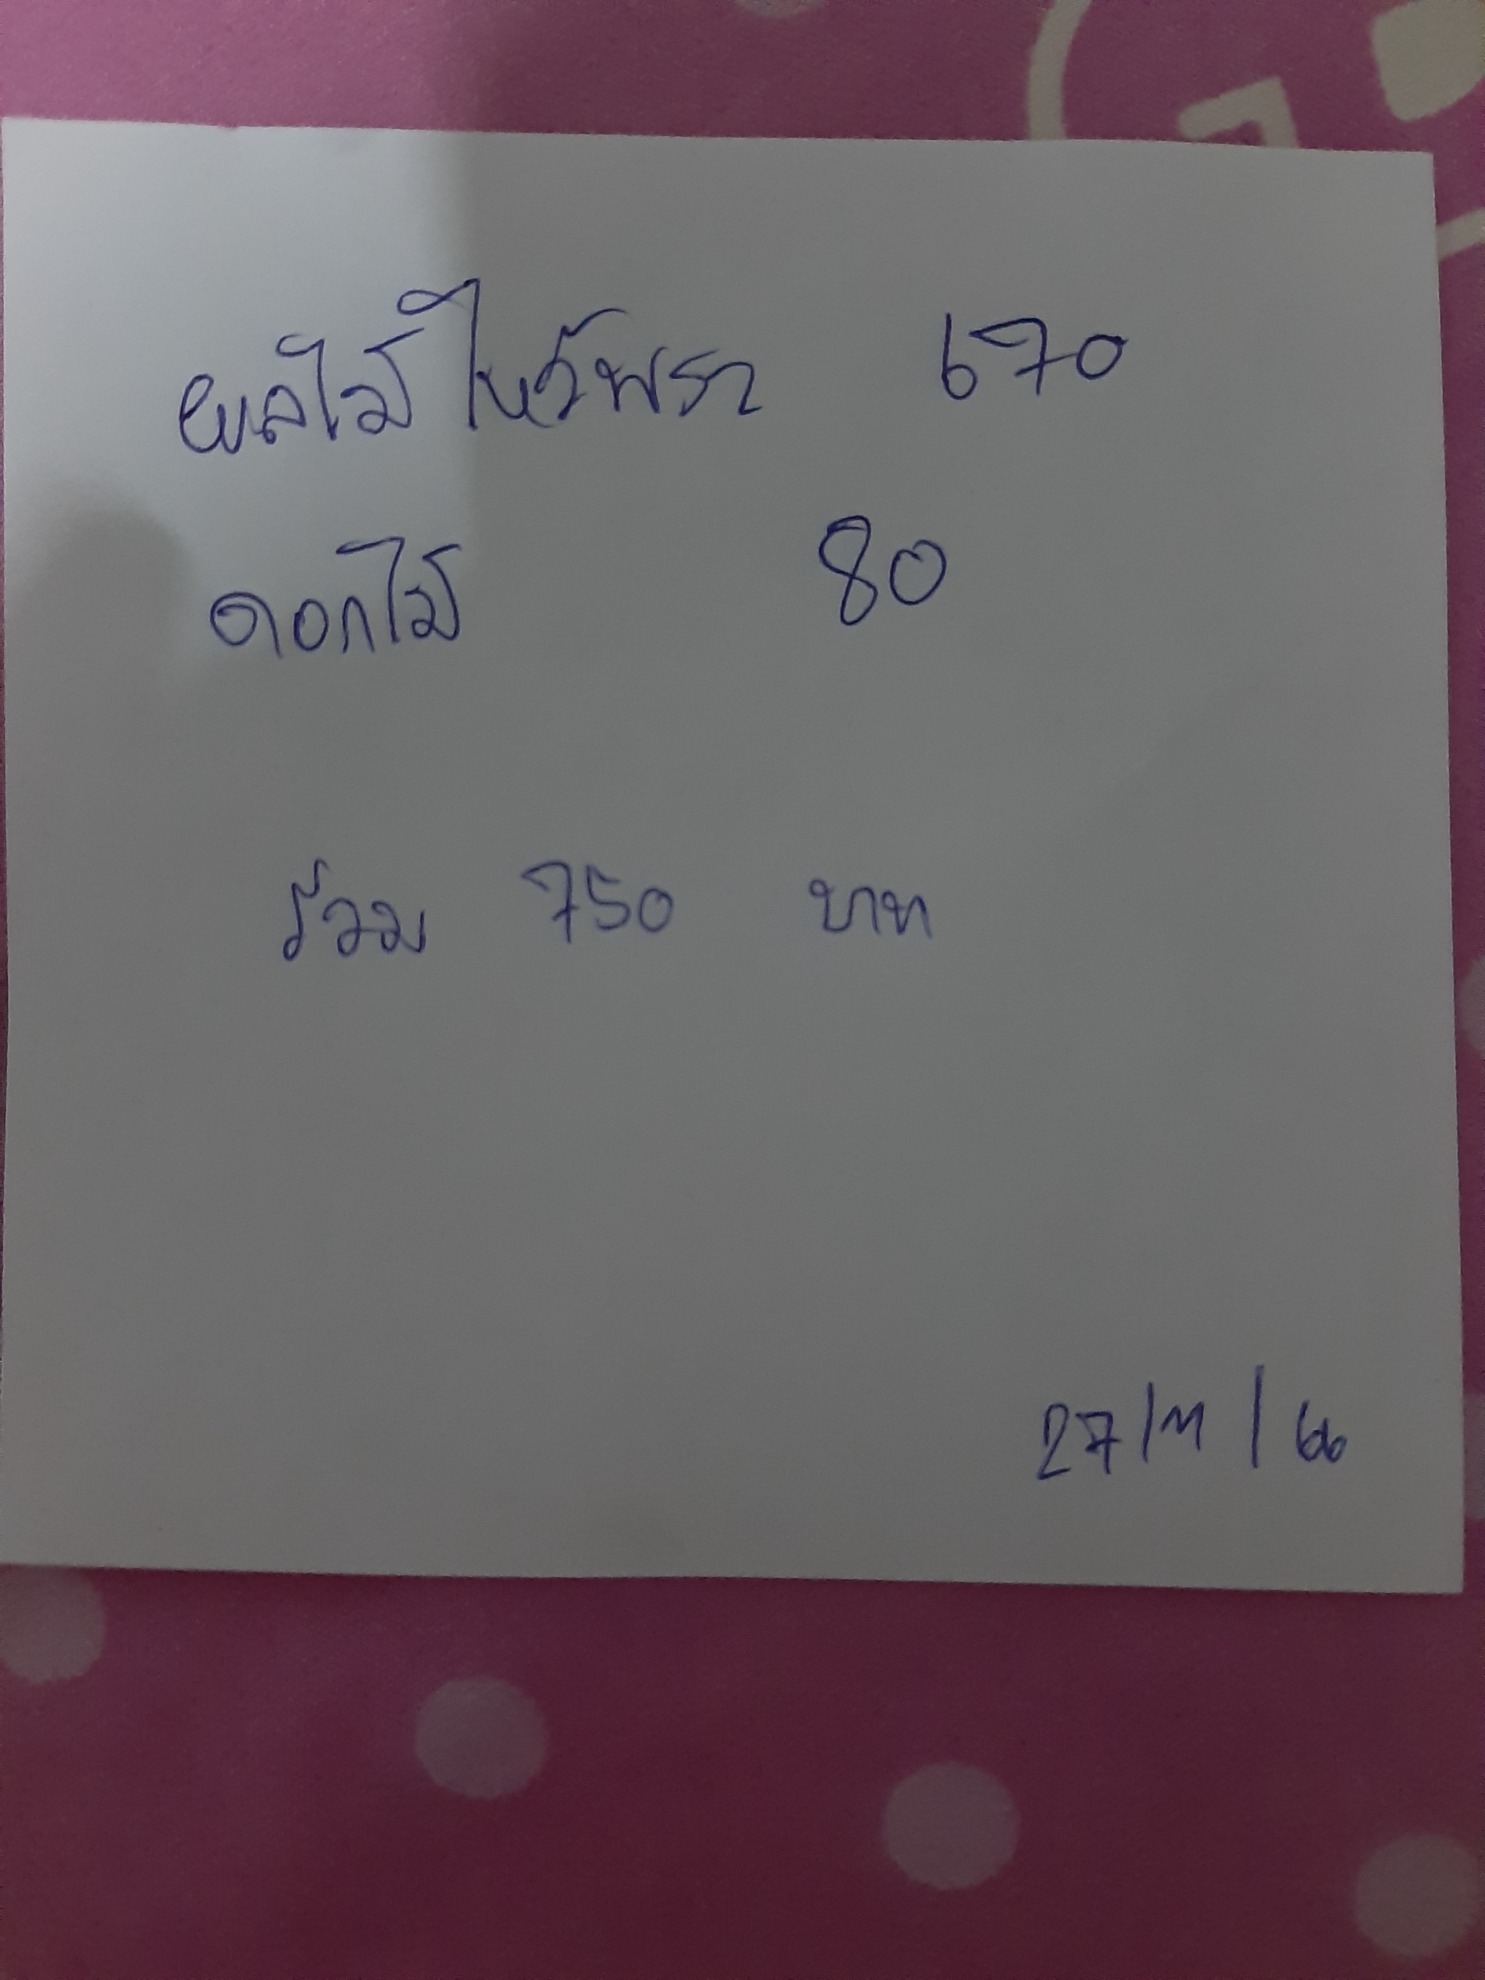 ผลไม้ไหว้พระ 670
ดอกไม้ 80
ร้วม 750 บาท
27/11/66